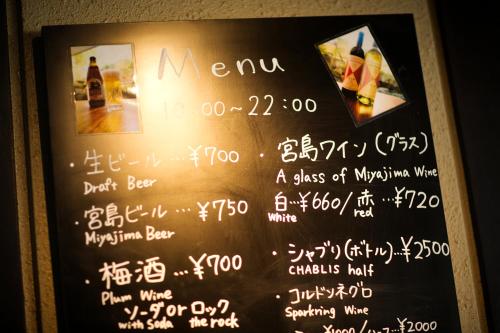 Menu
00~22:00
・生ビール…¥700
Draft Beer
・宮島ビール…¥750
Miyajima Beer
・梅酒…¥700
Plum Wine
ソーダorロック
with soda the rock
・宮島ワイン(グラス)
A glass of Miyajima Wine
白…¥660/赤…¥720
White red
・シャブリ(ボトル)…¥2500
CHABLIS half
・コルドンネグロ
Sparkring Wine